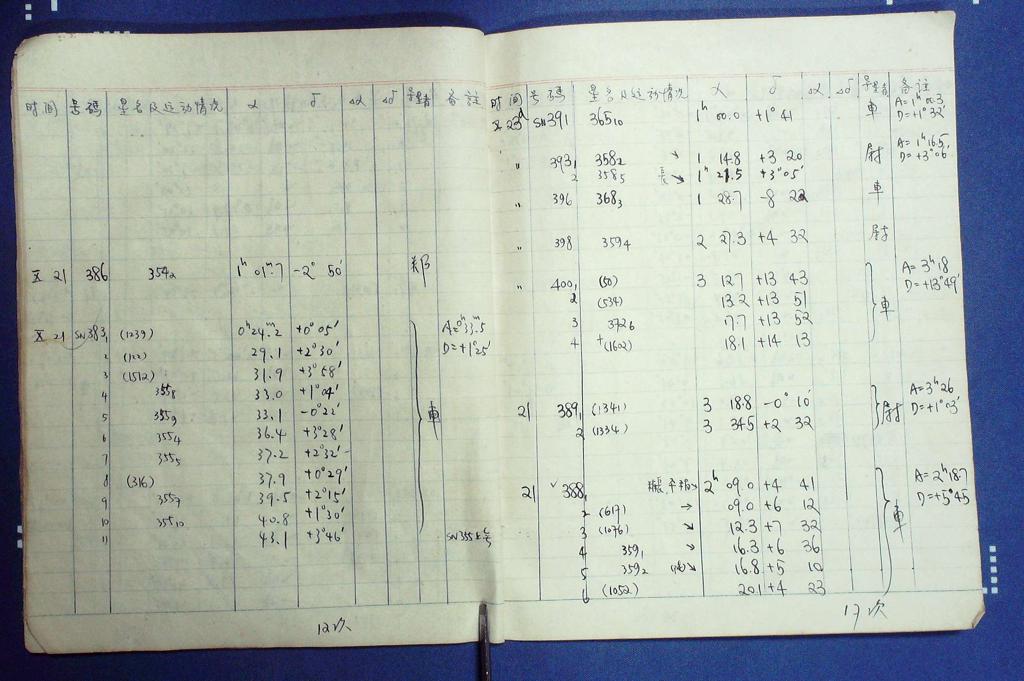 时间 号码 星名及运动情况 α δ Δα Δδ 备注
X 21 386 354₂ 1ʰ 01ᵐ.7 -2° 50'
X 21 SN383₁ (1239) 0ʰ24ᵐ.2 +0° 05' A=0ʰ33ᵐ.5
2 (122) 29.1 +2°30' D=+1°25'
3 (1512) 31.9 +3°58'
4 355₈ 33.0 +1°04'
5 355₃ 33.1 -0°22' 車
6 355₄ 36.4 +3°28'
7 355₅ 37.2 +2°32'
8 (316) 37.9 +0°29'
9 355₇ 39.5 +2°15'
10 355₁₀ 40.8 +1°30'
11 43.1 +3°46' SN355
12次
时间 号码 星名及运动情况 α δ Δα Δδ 备注
X 23ᵈ SN391 365₁₀ 1ʰ 00.0 +1° 41 車 A=1ʰ00.3
D=+1°32'
" 393₁ 358₂ ↘ 1 14.8 +3 20 A=1ʰ16.5
2 358₅ 長↘ 1ʰ 21.5 +3°05' D=+3°06'
" 396 368₃ 1 28.7 -8 22 車
" 398 359₄ 2 27.3 +4 32
" 400₁ (50) 3 12.7 +13 43 A=3ʰ18
2 (534) 13.2 +13 51 D=+13°49'
3 372₆ 17.7 +13 52 車
4 +(1602) 18.1 +14 13
21 389₁ (1341) 3 18.8 -0° 10' A=3ʰ26
2 (1334) 3 34.5 +2 32 D=+1°03'
21 388₁ 2ʰ 09.0 +4 41 A=2ʰ18.7
2 (617) → 09.0 +6 12 D=+5°45
3 (1076) ↘ 12.3 +7 32 車
4 359₁ ↘ 16.3 +6 36
5 359₂ ↘ 16.8 +5 10
6 (1052) 20.1 +4 23
17次